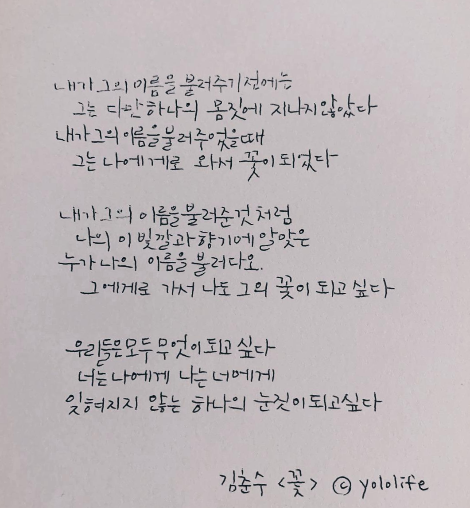 내가 그의 이름을 불러주기 전에는
그는 다만 하나의 몸짓에 지나지 않았다
내가 그의 이름을 불러주었을때
그는 나에게로 와서 꽃이 되었다
내가 그의 이름을 불러준것처럼
나의 이 빛깔과 향기에 알맞은
누가 나의 이름을 불러다오.
그에게로 가서 나도 그의 꽃이 되고 싶다
우리들은 모두 무엇이 되고 싶다
너는 나에게 나는 너에게
잊혀지지 않는 하나의 눈짓이 되고싶다
김춘수 <꽃> © yololife